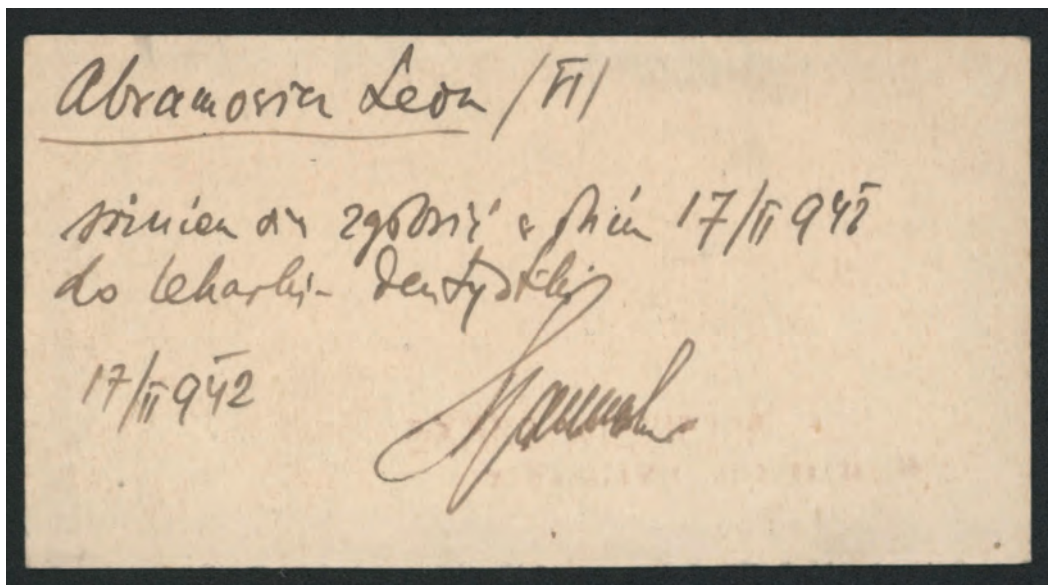 Abramowicz Leon /VI/
winien się zgłosić w dniu 17/II 942
do lekarki - dentystki
17/II 942